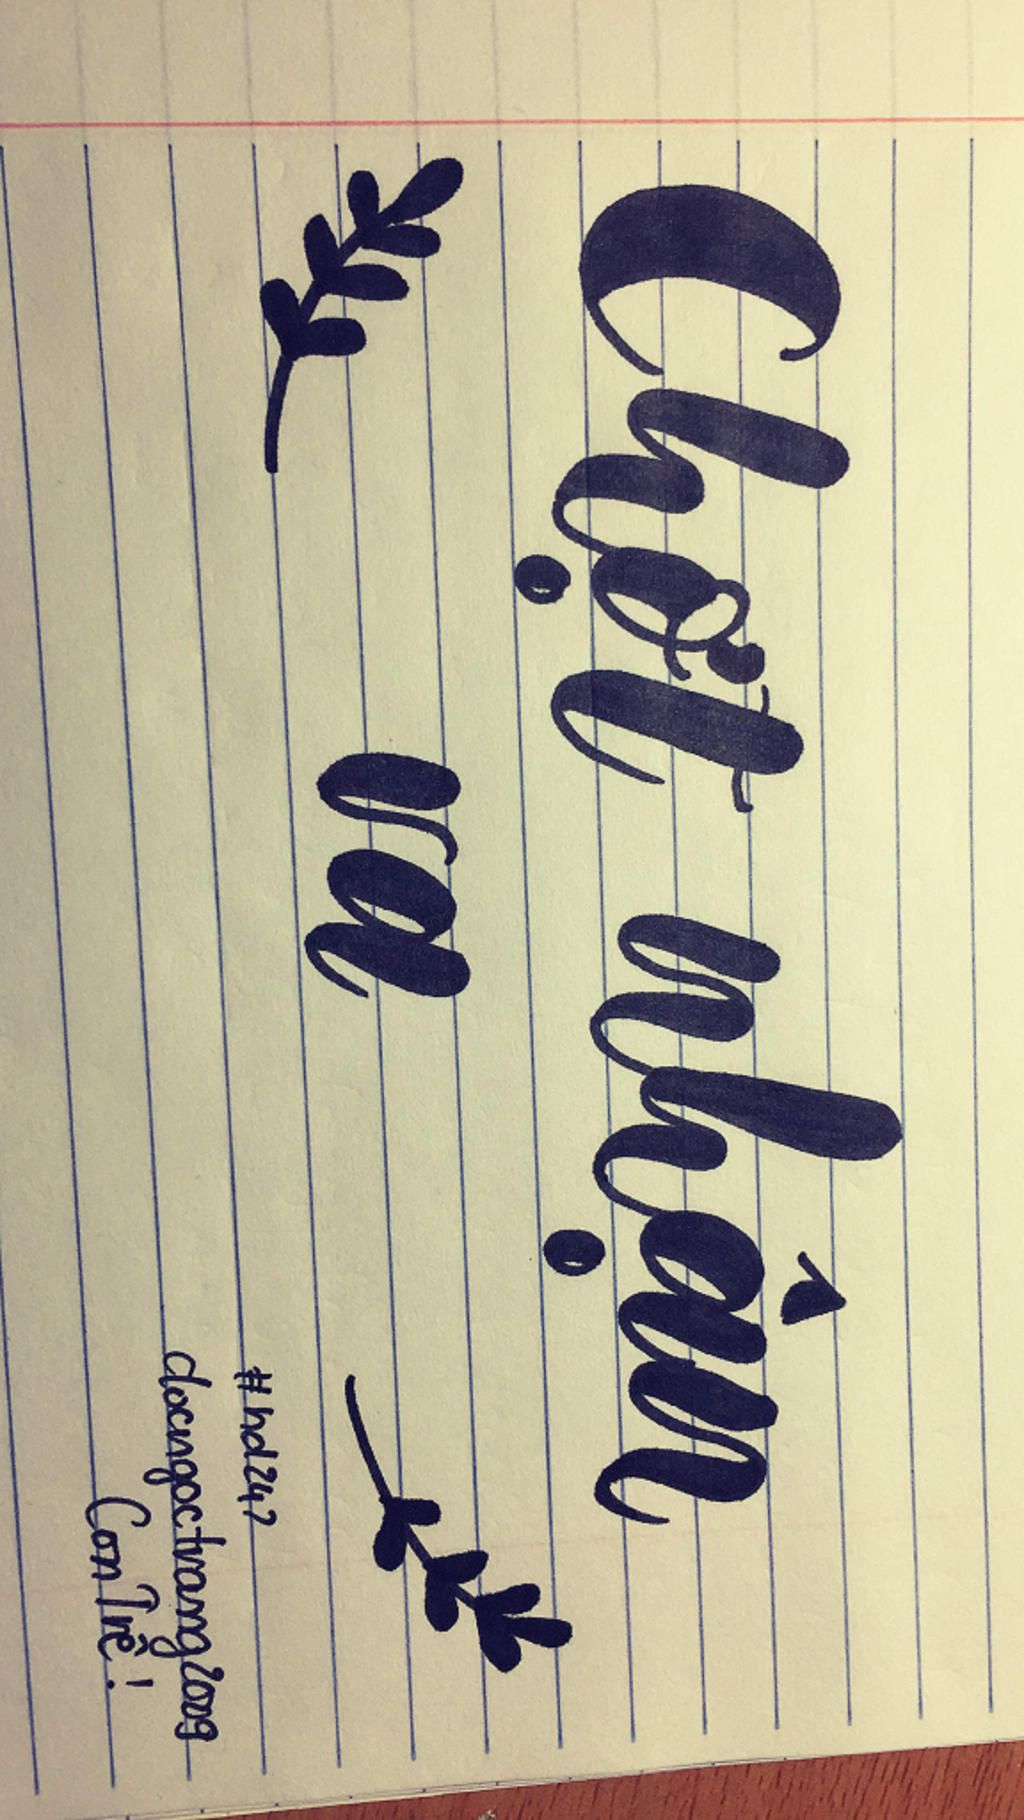 Chợt nhận
ra
#hd247
docngoctrang2009
Con Trê!